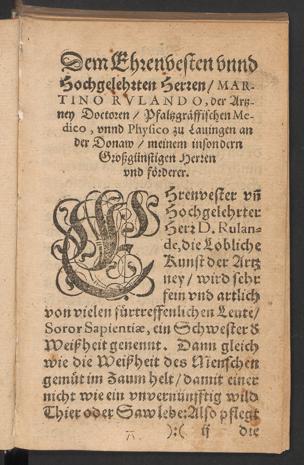 Dem Ehrenvesten vnnd
Hochgelehrten Herren / MAR-
TINO RVLANDO, der Artz-
ney Doctoren / Pfaltzgräffischen Me-
dico, vnnd Physico zu Lauingen an
der Donaw / meinem insondern
Großgünstigen Herren
vnd förderer.
EHrenvester vñ
Hochgelehrter
Herr D. Rulan-
de, die Löbliche
Kunst der Artz
ney / wird sehr
fein vnd artlich
von vielen fürtreffenlichen Leute /
Soror Sapientiæ, ein Schwester d
Weißheit genennt. Dann gleich
wie die Weißheit des Menschen
gemüt im Zaum helt / damit einer
nicht wie ein vnvernünfftig wild
Thier oder Saw lebe: Also pflegt
):( ij die